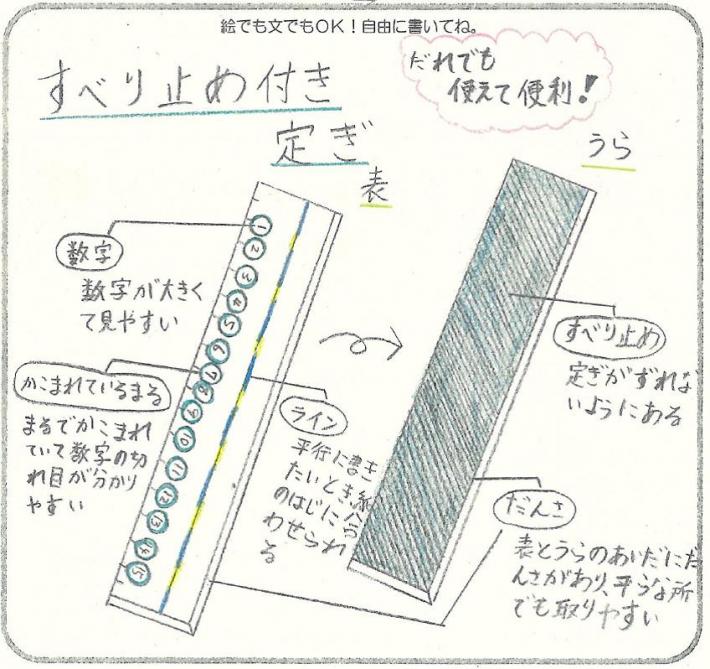 絵でも文でもOK！自由に書いてね。
すべり止め付き
定ぎ
だれでも
使えて便利!
表
うら
数字
数字が大きく
て見やすい
かこまれているまる
まるでかこまれ
ていて数字の切
れ目が分かり
やすい
1
2
3
4
5
6
7
8
9
10
11
12
13
14
15
ライン
平行に書き
たいとき、紙
のはじに合
わせられ
る
すべり止め
定ぎがずれな
いようにある
だんさ
表とうらのあいだにだ
んさがあり、平らな所
でも取りやすい